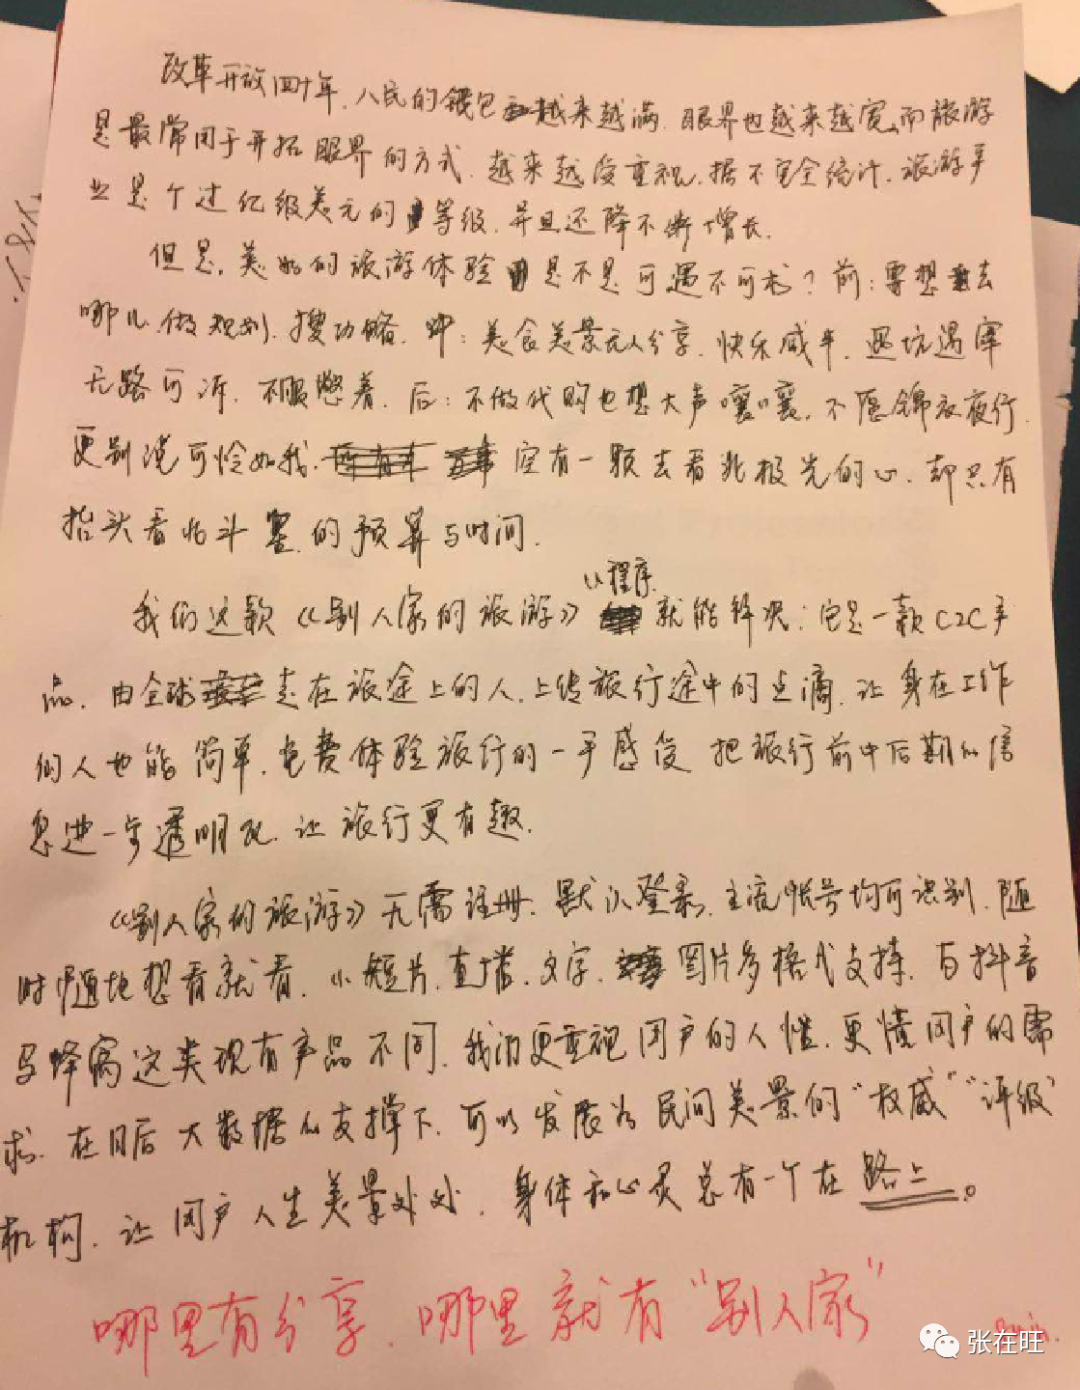 改革开放四十年，人民的钱包越来越满，眼界也越来越宽，而旅游
是最常用于开拓眼界的方式，越来越受重视，据不完全统计，旅游产
业是个过亿级美元的等级，并且还降不断增长。
但是，美好的旅游体验是不是可遇不可求？前：要想去
哪儿，做规划，搜功略，中：美食美景无人分享，快乐减半，遇坑遇宰
无路可诉，不服憋着，后：不做代购也想大声嚷嚷，不愿锦衣夜行
更别说可怜如我，空有一颗去看北极光的心，却只有
抬头看北斗星的预算与时间。
我们这款《别人家的旅游》小程序就能解决：它是一款C2C产
品，由全球走在旅途上的人，上传旅行途中的点滴，让身在工作
的人也能简单，免费体验旅行的一手感受，把旅行前中后期的信
息进一步透明化，让旅行更有趣。
《别人家的旅游》无需注册，默认登录，主流帐号均可识别，随
时随地想看就看，小短片，直播，文字，图片多格式支持，与抖音
马蜂窝这类现有产品不同，我们更重视用户的人性，更懂用户的需
求，在日后大数据的支撑下，可以发展为民间美景的“权威”“评级”
机构，让用户人生美景处处，身体和心灵总有一个在路上。
哪里有分享，哪里就有“别人家”
张在旺